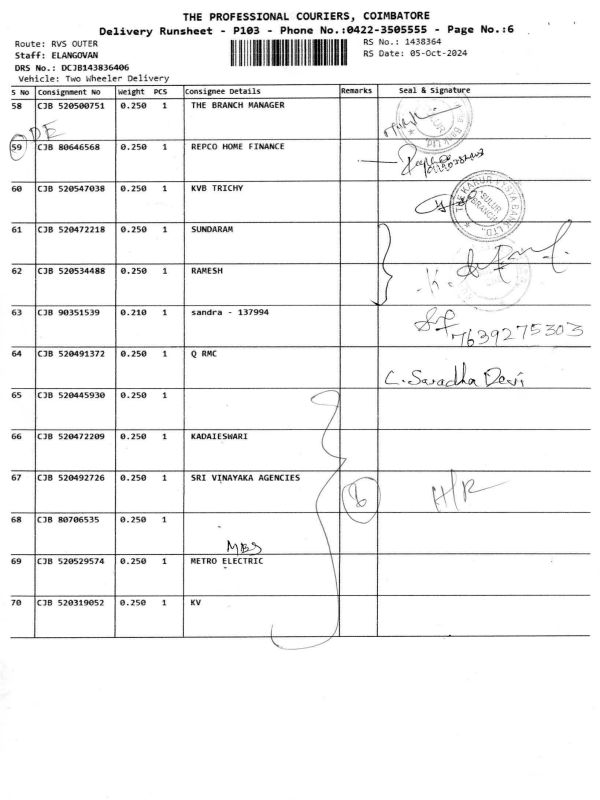 THE PROFESSIONAL COURIERS, COIMBATORE
Delivery Runsheet - P103 - Phone No.:0422-3505555 - Page No.:6
Route: RVS OUTER
RS No.: 1438364
Staff: ELANGOVAN
RS Date: 05-Oct-2024
DRS No.: DCJB143836406
Vehicle: Two Wheeler Delivery
S No Consignment No Weight PCS Consignee Details Remarks Seal & Signature
58 CJB 520500751 0.250 1 THE BRANCH MANAGER
DE
59 CJB 80646568 0.250 1 REPCO HOME FINANCE
60 CJB 520547038 0.250 1 KVB TRICHY
THE KARUR VYSYA BANK LTD.
SULUR
BRANCH
61 CJB 520472218 0.250 1 SUNDARAM
62 CJB 520534488 0.250 1 RAMESH
63 CJB 90351539 0.210 1 sandra - 137994
7639275303
64 CJB 520491372 0.250 1 Q RMC
C. Saradha Devi
65 CJB 520445930 0.250 1
66 CJB 520472209 0.250 1 KADAIESWARI
67 CJB 520492726 0.250 1 SRI VINAYAKA AGENCIES
6 H/R
68 CJB 80706535 0.250 1
MBS
69 CJB 520529574 0.250 1 METRO ELECTRIC
70 CJB 520319052 0.250 1 KV